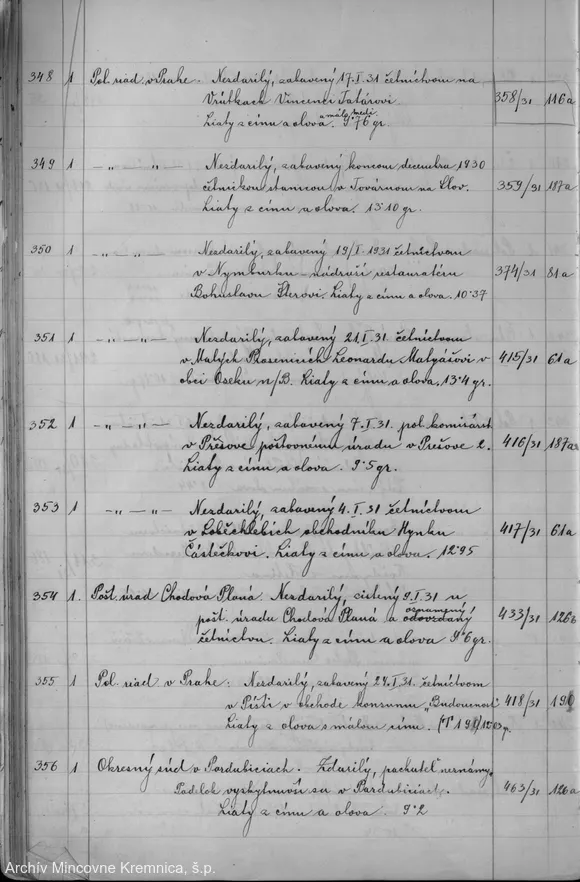 348 1 Pol. riad. v Prahe. Nezdarilý, zabavený 17.I.31 četníctvom na
Vrútkach Vincenci Tatárovi. 358/31 116a
Liaty z cínu a olova. málo medi 9.76 gr.
349 1 —„— „— Nezdarilý, zabavený koncom decembra 1930
četníckou stanicou v Továrnom na Slov. 359/31 187a
Liaty z cínu a olova. 13.10 gr.
350 1 —„—„— Nezdarilý, zabavený 19/I 1931 četníctvom
v Nymburku – nádraží restauratéru 374/31 81a
Bohuslavu Šterovi. Liaty z cínu a olova. 10.37
351 1 —„—„— Nezdarilý, zabavený 21.I.31 četníctvom
v Malých Prosenicích Leonardu Matyášovi v 415/31 61a
obci Oseku n/B. Liaty z cínu a olova. 13.4 gr.
352 1 —„—„— Nezdarilý, zabavený 7.I.31. pol. komisárst
v Prešove poštovnému úradu v Prešove 2. 416/31 187a
Liaty z cínu a olova. 9.5 gr.
353 1 —„—„— Nezdarilý, zabavený 4.I.31 četníctvom
v obchodníku Hynku 417/31 61a
Částečkovi. Liaty z cínu a olova. 12.95
354 1. Pošt. úrad Chodová Planá. Nezdarilý, zistený 9.I.31 u
pošt. úradu Chodová Planá a oznamený odovzdaný 433/31 126b
četníctvu. Liaty z cínu a olova 9.6 gr.
355 1 Pol. riad v Prahe. Nezdarilý, zabavený 24.I.31. četníctvom
v obchode konzumu „Budoucnost" 418/31 190
Liaty z olova s málom cínu.
356 1 Okresný súd v Pardubiciach. Zdarilý, pachateľ neznámy.
Padelok vyskytnuvší sa v Pardubiciach. 463/31 126a
Liaty z cínu a olova. 9.2
Archív Mincovne Kremnica, š.p.